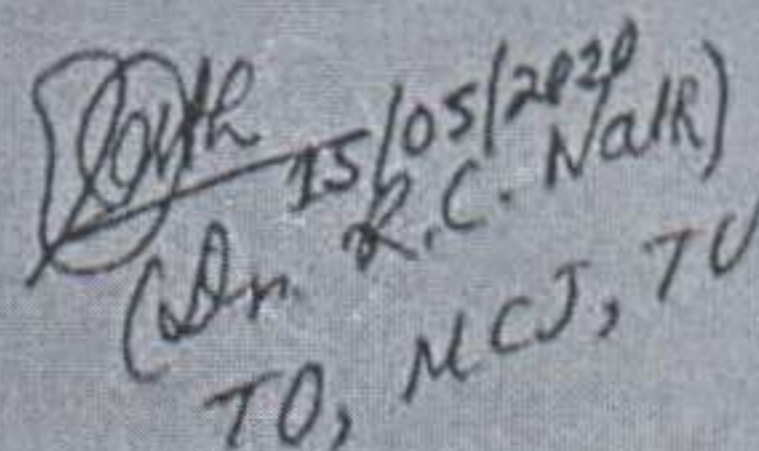 15/05/2020
(Dr. R.C. Nath)
TO, MCJ, TU